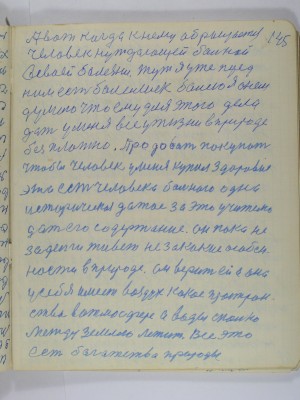 А вот когда к нему обращается 145
человек нуждающей больной
своей болезни, тут я уже пред
ним есть болельщик болею я о нем
думаю что ему для этого дела
дать у меня все у жизни в природе
бесплатно. Продовать покупать
чтобы человек у меня купил здоровье
это есть человека больного одна
истерическая за это учителю
дать его содержание. он пока не
за деньги живет не закание особен
ности в природе. он верит ей а она
у себя имеет воздух какое простран
ства в атмосфере а воды сколько
между землею летит. Все это
есть багатства природы